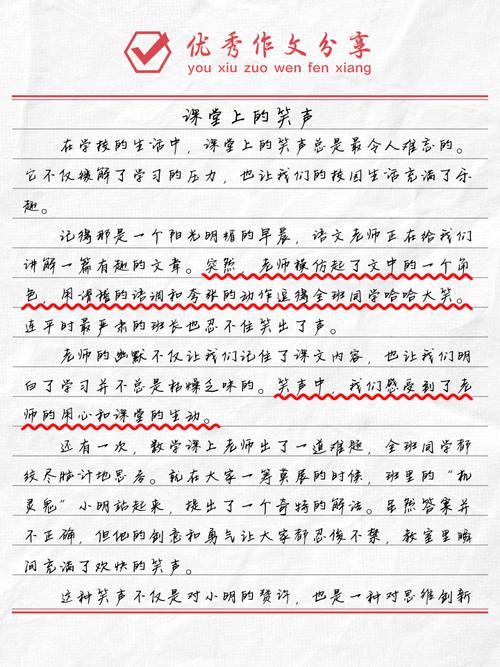 优秀作文分享
you xiu zuo wen fen xiang
课堂上的笑声
在学校的生活中，课堂上的笑声总是最令人难忘的。
它不仅缓解了学习的压力，也让我们的校园生活充满了乐
趣。
记得那是一个阳光明媚的早晨，语文老师正在给我们
讲解一篇有趣的文章。突然，老师模仿起了文中的一个角
色，用滑稽的语调和夸张的动作逗得全班同学哈哈大笑。
连平时最严肃的班长也忍不住笑出了声。
老师的幽默不仅让我们记住了课文内容，也让我们明
白了学习并不总是枯燥乏味的。笑声中，我们感受到了老
师的用心和课堂的生动。
还有一次，数学课上老师出了一道难题，全班同学都
绞尽脑汁地思考。就在大家一筹莫展的时候，班里的“机
灵鬼”小明站起来，提出了一个奇特的解法。虽然答案并
不正确，但他的创意和勇气让大家都忍俊不禁，教室里瞬
间充满了欢快的笑声。
这种笑声不仅是对小明的赞许，也是一种对思维创新